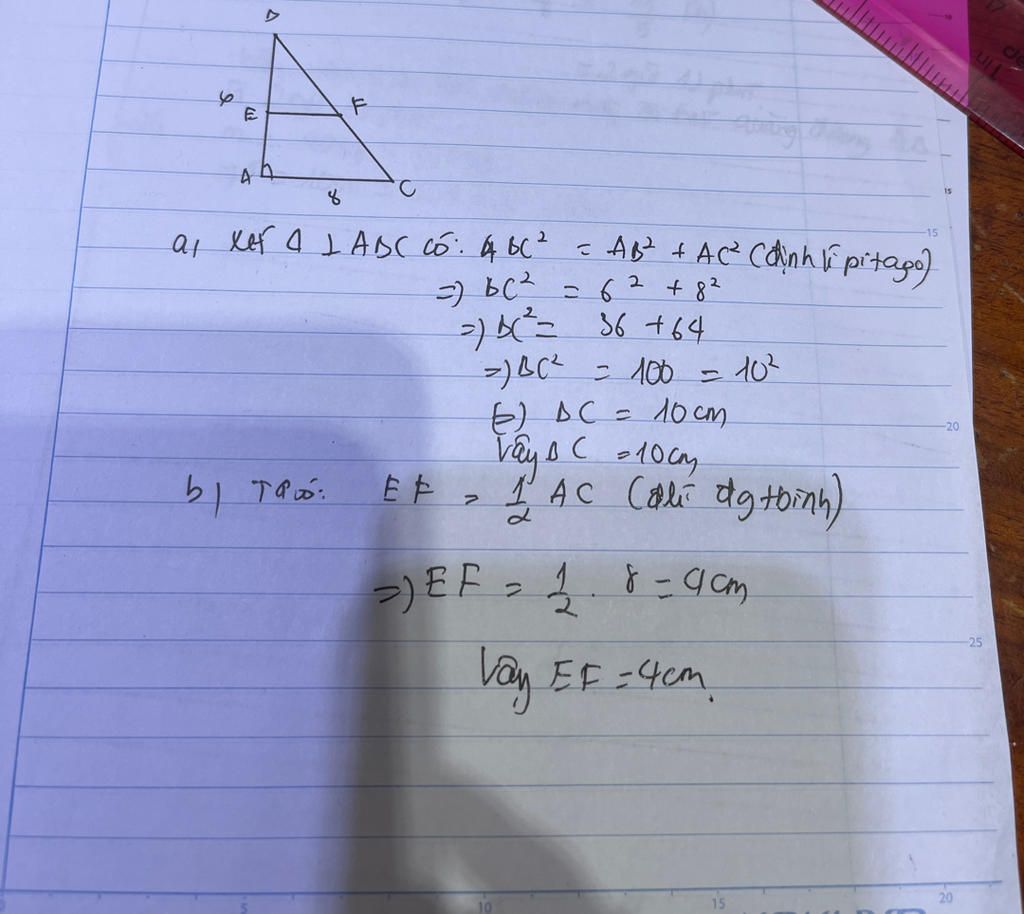 B
6
E
F
A
8
C
a, Xét Δ ⊥ ABC có: BC² = AB² + AC² (định lí pitago)
=) BC² = 6² + 8²
=) BC² = 36 + 64
=) BC² = 100 = 10²
(=) BC = 10 cm
Vậy BC = 10 cm
b) Ta có: EF = 1/2 AC (đlí đg tbình)
=) EF = 1/2 . 8 = 4 cm
Vậy EF = 4 cm.
15
15
20
25
5
10
15
20